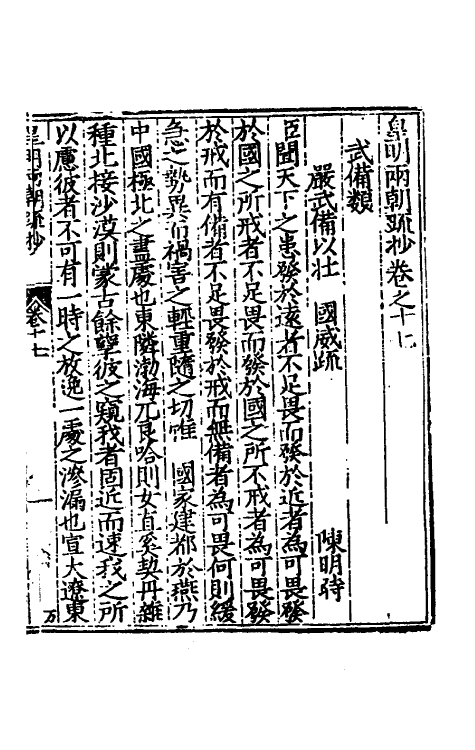 皇明兩朝疏抄卷之十七
武備類
嚴武備以壯　國威疏　陳明時
臣聞天下之患發於遠者不足畏而發於近者為可畏發
於國之所戒者不足畏而發於國之所不戒者為可畏發
於戒而有備者不足畏發於戒而無備者為可畏何則緩
急之勢異而禍害之輕重隨之切惟　國家建都於燕乃
中國極北之盡處也東隣渤海兀良哈則女直奚契丹雜
種北接沙漠則蒙古餘孽彼之窺我者固近而速我之所
以慮彼者不可有一時之放逸一處之滲漏也宣大遼東
皇明兩朝疏抄　卷十七　一